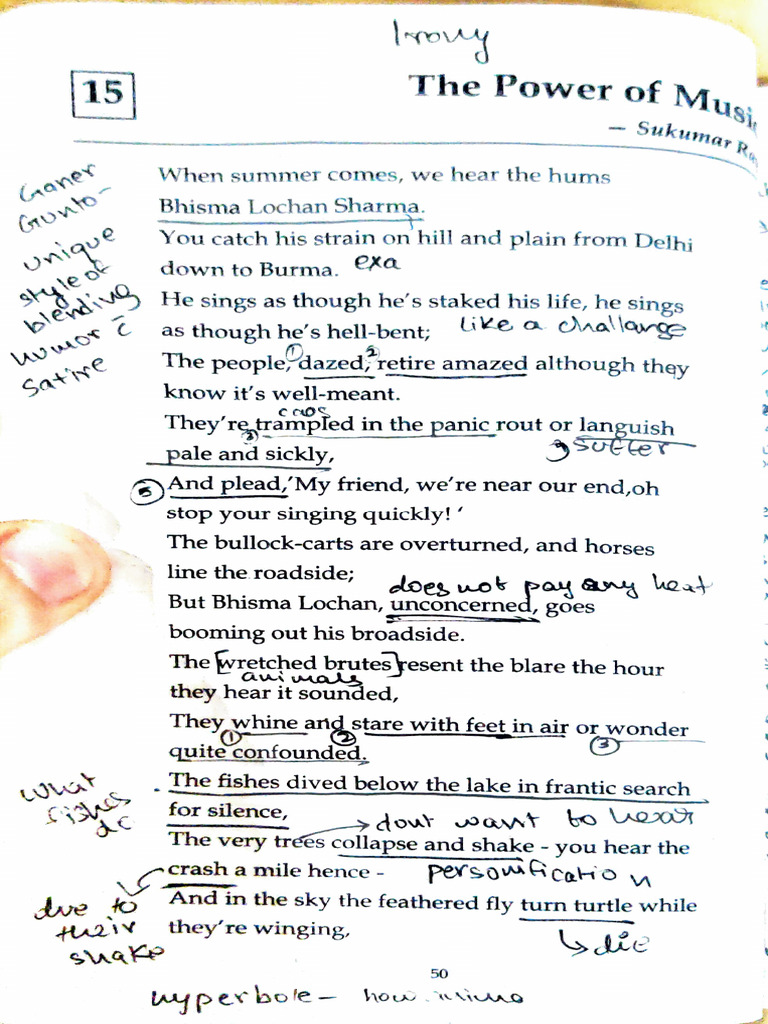 Irony
15
The Power of Musi
— Sukumar Ra
Ganer
Gunto-
unique
style of
blending
humor c̄
satire
When summer comes, we hear the hums
Bhisma Lochan Sharma.
You catch his strain on hill and plain from Delhi
down to Burma. exa
He sings as though he's staked his life, he sings
as though he's hell-bent; like a challange
The people, ① dazed, ② retire amazed although they
know it's well-meant.
They're trampled in the panic rout or languish
③ suffer
pale and sickly,
⑤ And plead,'My friend, we're near our end,oh
stop your singing quickly! '
The bullock-carts are overturned, and horses
line the roadside;
does not pay any heat
But Bhisma Lochan, unconcerned, goes
booming out his broadside.
The [wretched brutes] resent the blare the hour
animals
they hear it sounded,
They whine and stare with feet in air or wonder
① ② ③
quite confounded.
What
fishes
do
The fishes dived below the lake in frantic search
for silence,
dont want to hear
The very trees collapse and shake - you hear the
crash a mile hence - personification
due to
their
shake
And in the sky the feathered fly turn turtle while
they're winging,
die
50
hyperbole -